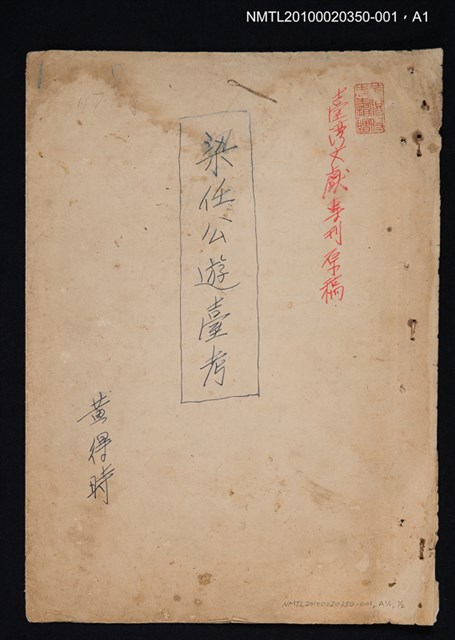 NMTL20100020350-001，A1
臺灣文獻專刊原稿
梁任公遊臺考
黃得時
NMTL20100020350-001, A1/1, 1/2